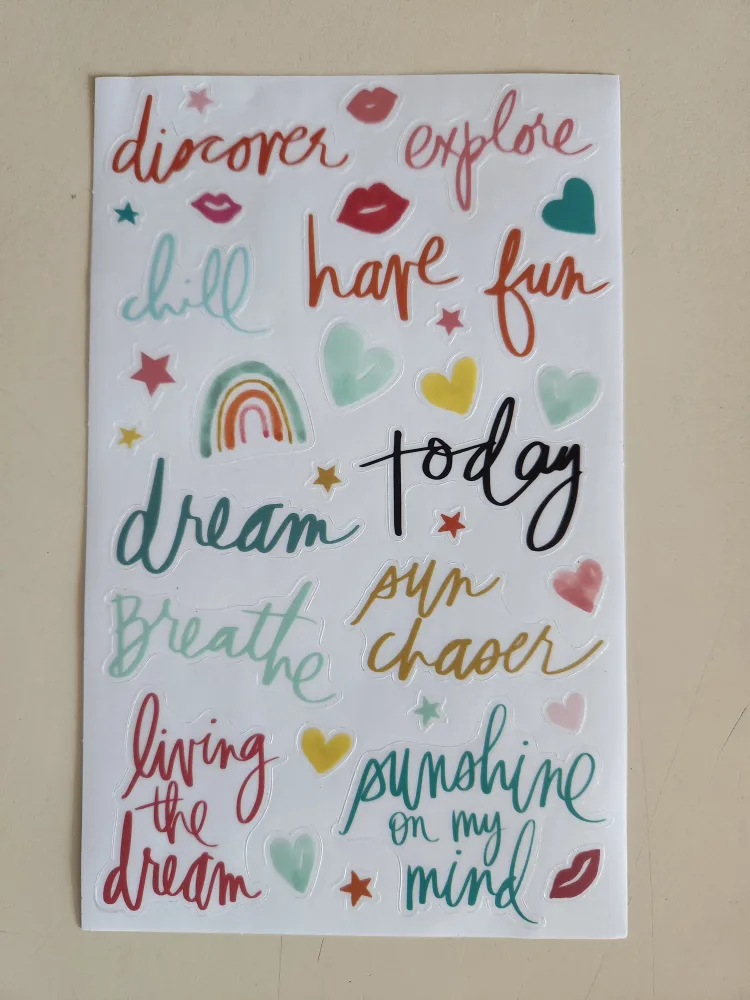 discover
explore
chill
have fun
today
dream
sun
chaser
Breathe
living
the
dream
sunshine
on my
mind